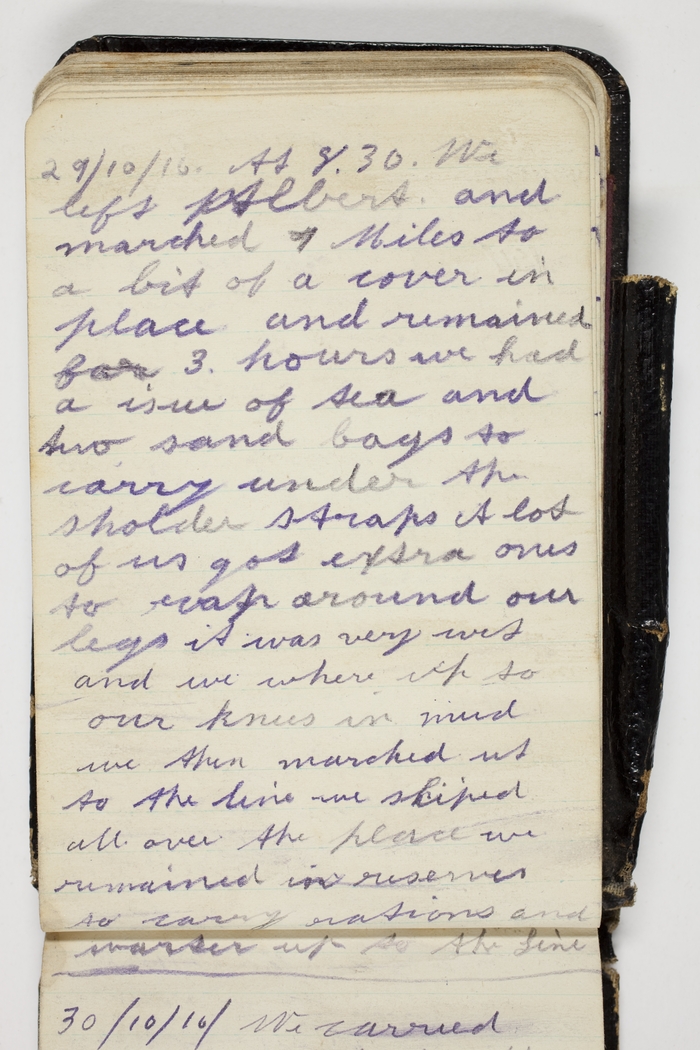 29/10/16. At 8.30. We
left Albert. and
marched 7 Miles to
a bit of a cover in
place and remained
for 3. hours we had
a isue of tea and
two sand bags to
carry under the
sholder straps A lot
of us got extra ones
to wrap around our
legs it was very wet
and we where up to
our knees in mud
we then marched up
to the line we sliped
all over the place we
remained in reserves
to carry rations and
warter up to the line
30/10/16/ We carried